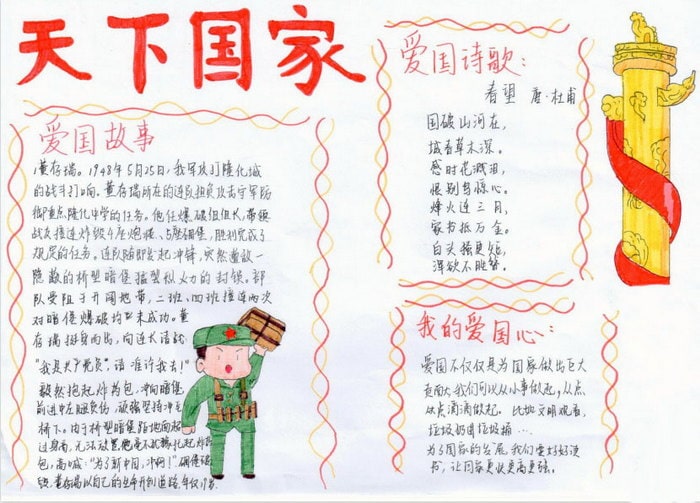 天下国家
爱国故事
董存瑞。1948年5月25日,我军攻打隆化城
的战斗打响。董存瑞所在的连队担负攻击守军防
御重点隆化中学的任务。他任爆破组组长,带领
战友接连炸毁4座炮楼、5座碉堡,胜利完成了
规定的任务。连队随即发起冲锋,突然遭敌一
隐蔽的桥型暗堡猛烈火力的封锁。部
队受阻于开阔地带,二班、四班接连两次
对暗堡爆破均未成功。董
存瑞挺身而出,向连长请战:
"我是共产党员,请准许我去!"
毅然抱起炸药包,冲向暗堡
前进中左腿负伤,顽强坚持冲至
桥下。由于桥型暗堡距地面超
过身高,
包,高喊:"为了新中国,冲啊!"碉堡被
董存瑞以自己的生命开创道路,年仅19岁
爱国诗歌:
春望 唐·杜甫
国破山河在,
城春草木深。
感时花溅泪,
恨别鸟惊心。
烽火连三月,
家书抵万金。
白头搔更短,
浑欲不胜簪。
我的爱国心:
爱国不仅仅是为国家做出巨大
贡献,我们可以从小事做起,从点
点滴滴做起。比如文明观看,
垃圾扔进垃圾桶…
为了国家的发展,我们要好好读
书,让国家更快更高更强。